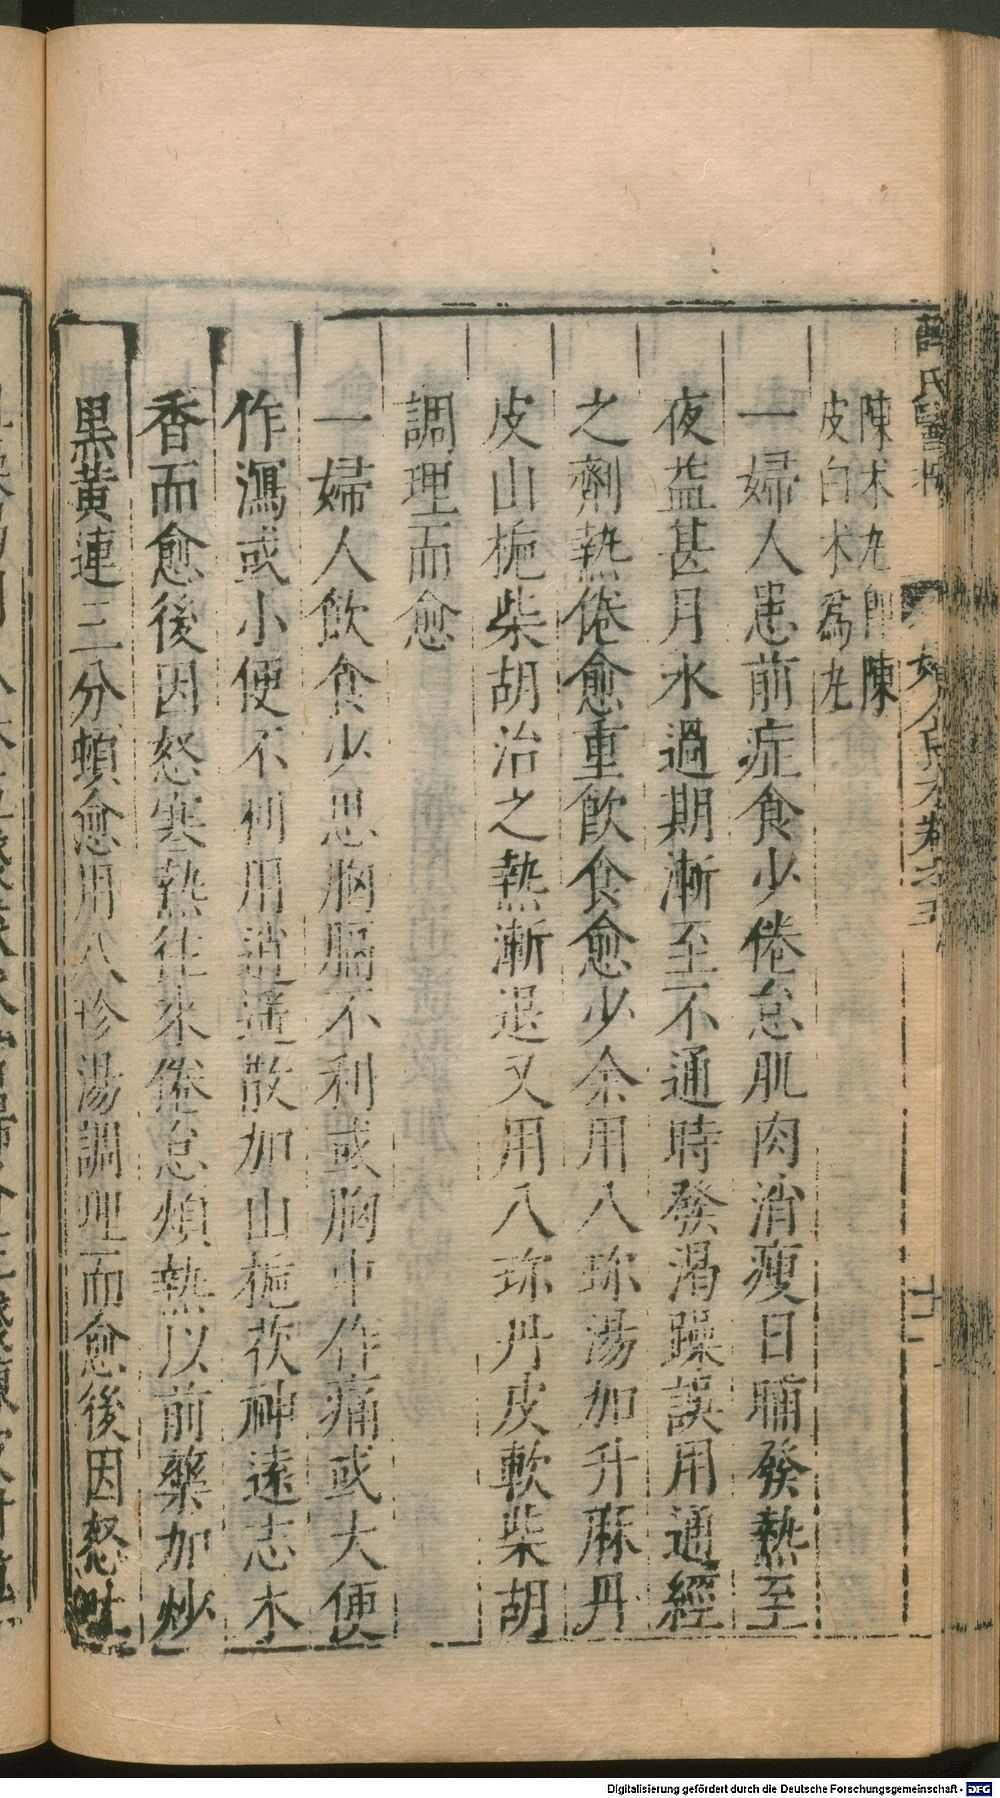 薛氏醫按
婦人良方卷之五
十二
陳朮丸即陳
皮白朮爲丸
一婦人患前症食少倦怠肌肉消瘦日晡發熱至
夜益甚月水過期漸至不通時發渴躁誤用通經
之劑熱倦愈重飲食愈少余用八珍湯加升麻丹
皮山梔柴胡治之熱漸退又用八珍丹皮軟柴胡
調理而愈
一婦人飲食少思胸膈不利或胸中作痛或大便
作瀉或小便不利用逍遥散加山梔茯神遠志木
香而愈後因怒寒熱往來倦怠煩熱以前藥加炒
黑黃連三分頓愈用八珍湯調理而愈後因怒吐
Digitalisierung gefördert durch die Deutsche Forschungsgemeinschaft - DFG